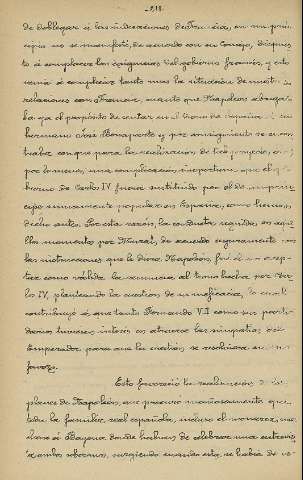 de doblegar á las indicaciones de Francia, en un prin-
cipio no se manifestó, de acuerdo con su Consejo, dispues-
to á complacer las exigencias del gobierno francés, y esto
venía á complicar tanto mas la situación de nuestras
relaciones con Francia, cuanto que Napoleon abriga-
ba ya el propósito de sentar en el trono de España á su
hermano José Bonaparte y por consiguiente se encon-
traba con que para la realización de sus proyectos, era
por lo menos, una complicación inoportuna que el go-
bierno de Carlos IV fuese sustituido por el de un prin-
cipe sumamente popular en España, como hemos
dicho antes. Por esta razón, la conducta seguida en aque-
llos momentos por Murat, de acuerdo seguramente con
las instrucciones que le diera Napoleon, fué á no acep-
tar como válida la renuncia al trono hecha por Car-
los IV, planteando la cuestion de su ineficacia, lo cual
contribuyó á que tanto Fernando VII como sus parti-
darios tuviesen interés en atraerse las simpatías del
Emperador para que la cuestion se resolviera en su
favor.
Esto favoreció la realización de los
planes de Napoleón, que procuró mañosamente que
toda la familia real española, incluso el monarca, mar-
chara á Bayona donde habian de celebrar una entrevis-
ta ambos soberanos, surgiendo cuando esta se había de ve-